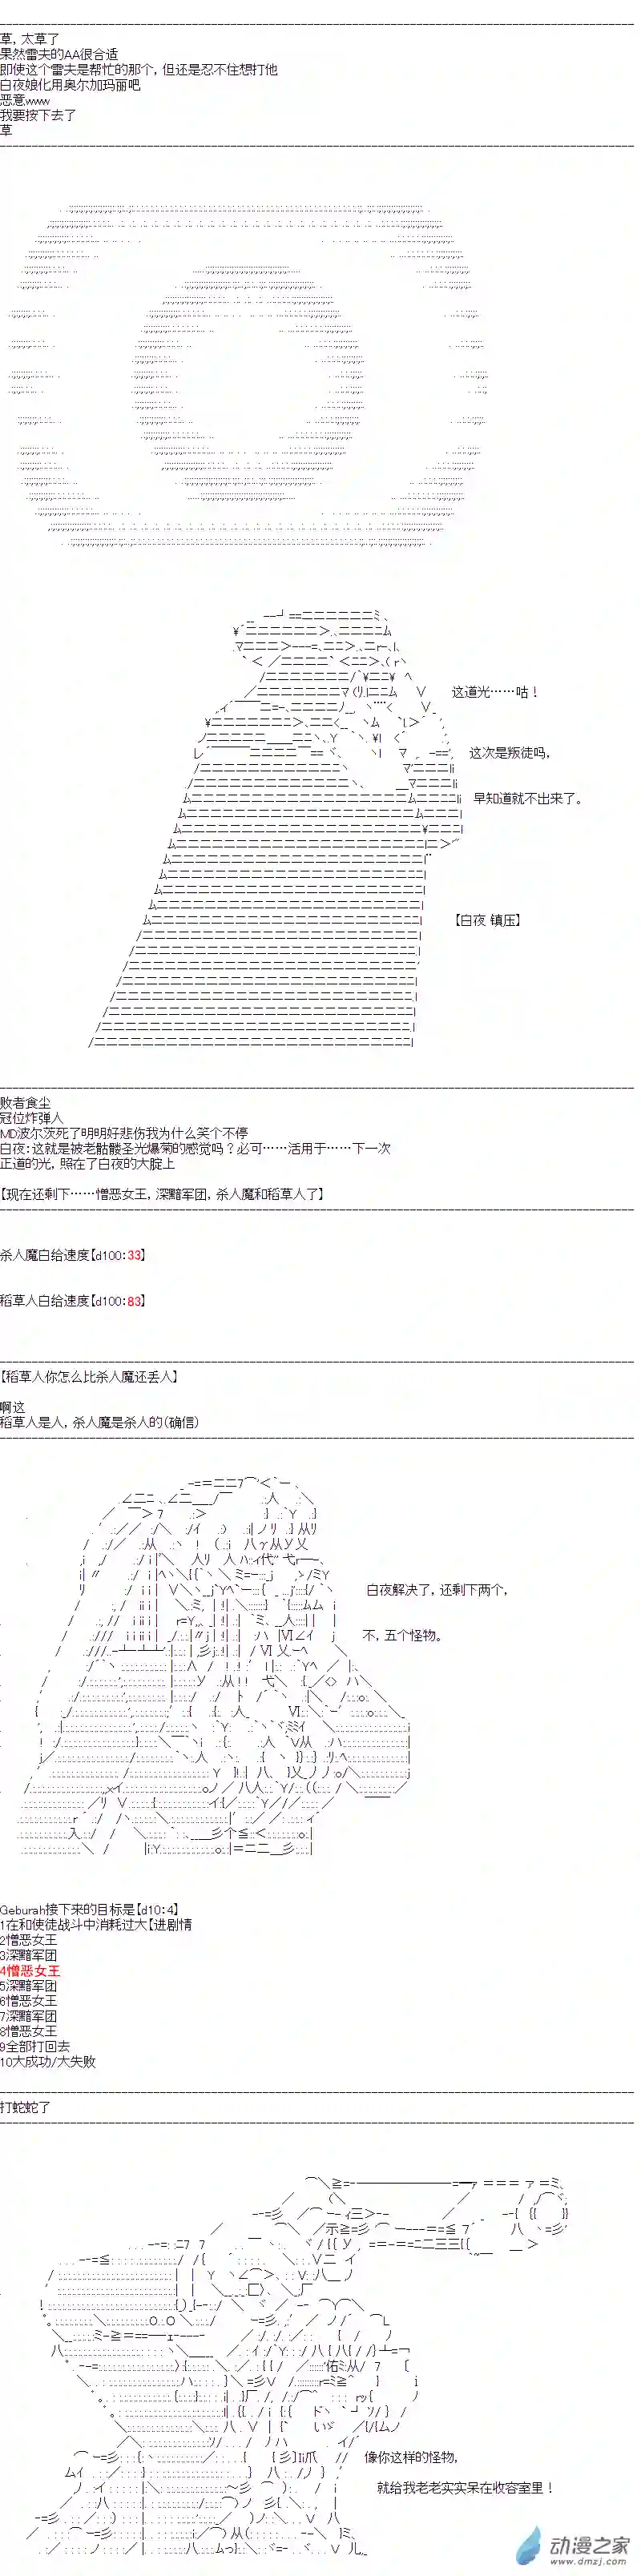 草,太草了
果然雷夫的AA很合适
即使这个雷夫是帮忙的那个,但还是忍不住想打他
白夜娘化用奥尔加玛丽吧
恶意www
我要按下去了
草
这道光……咕！
这次是叛徒吗，
早知道就不出来了。
【白夜 镇压】
败者食尘
冠位炸弹人
MD波尔茨死了明明好悲伤我为什么笑个不停
白夜：这就是被老骷髅圣光爆菊的感觉吗？必可……活用于……下一次
正道的光，照在了白夜的大腚上
【现在还剩下……憎恶女王，深黯军团，杀人魔和稻草人了】
杀人魔白给速度【d100:33】
稻草人白给速度【d100:83】
【稻草人你怎么比杀人魔还丢人】
啊这
稻草人是人，杀人魔是杀人的(确信)
白夜解决了，还剩下两个，
不，五个怪物。
Geburah接下来的目标是【d10:4】
1在和使徒战斗中消耗过大【进剧情
2憎恶女王
3深黯军团
4憎恶女王
5深黯军团
6憎恶女王
7深黯军团
8憎恶女王
9全部打回去
10大成功/大失败
打蛇蛇了
像你这样的怪物，
就给我老老实实呆在收容室里！
动漫之家
www.dmzj.com